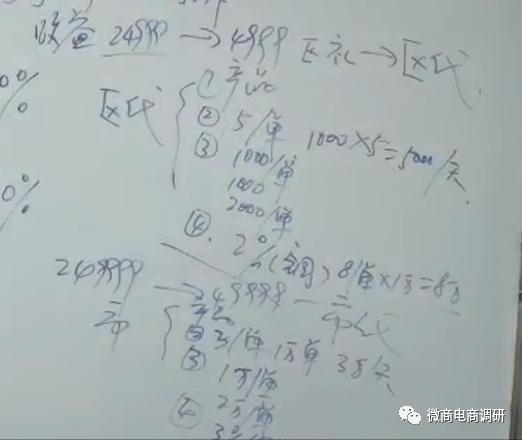 收益 24999 → 4999 区礼 → 区代
0%
区代
① 产品
② 5/单 1000×5=5000/天
③ 1000/单
1000/单
2000/单
④ 2%(全国) 8/单×1万=8万
0%
249999 → 49999 市代
市
产品
② 3/单 1万单 3万/天
③ 1万/单
2万/单
④ 3%
微商电商调研